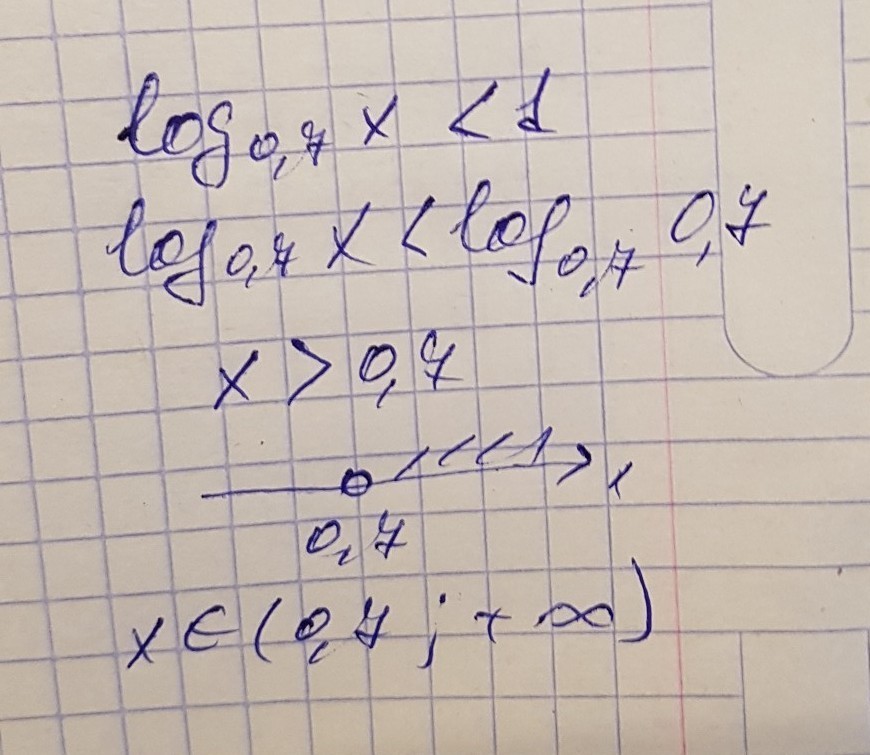 log₀,₇ x < 1
log₀,₇ x < log₀,₇ 0,7
x > 0,7
x
0,7
x ∈ (0,7 ; + ∞)